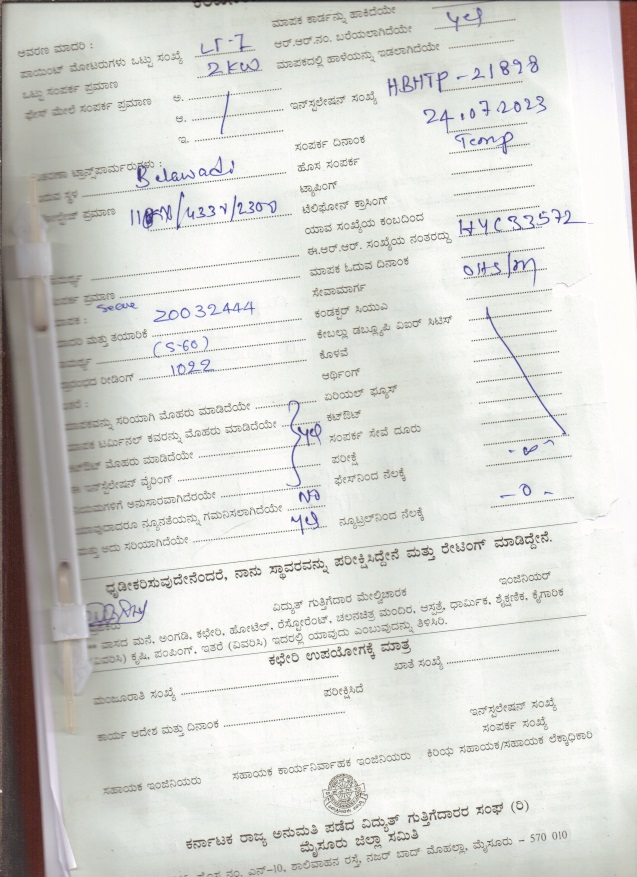 ಮಾಪಕ ಕಾರ್ಡನ್ನು ಹಾಕಿದೆಯೇ yes
ಆವರಣ ಮಾದರಿ : LT-7 ಆರ್.ಆರ್.ನಂ. ಬರೆಯಲಾಗಿದೆಯೇ
ಪಾಯಿಂಟ್ ಮೋಟರುಗಳು ಒಟ್ಟು ಸಂಖ್ಯೆ 2KW ಮಾಪಕದಲ್ಲಿ ಹಾಳೆಯನ್ನು ಇಡಲಾಗಿದೆಯೇ
ಒಟ್ಟು ಸಂಪರ್ಕ ಪ್ರಮಾಣ
ಫೇಸ್ ಮೇಲೆ ಸಂಪರ್ಕ ಪ್ರಮಾಣ ಅ. ಇನ್‌ಸ್ಟಲೇಷನ್ ಸಂಖ್ಯೆ HBHTP-21898
ಆ. 24.07.2023
ಇ. ಸಂಪರ್ಕ ದಿನಾಂಕ Temp
ಟ್ರಾನ್ಸ್‌ಫಾರ್ಮರುಗಳು : ಹೊಸ ಸಂಪರ್ಕ
ಸ್ಥಳ Belawadi ಟ್ಯಾಪಿಂಗ್
ಪ್ರಮಾಣ /433V/230V ಟೆಲಿಫೋನ್ ಕ್ರಾಸಿಂಗ್
ಯಾವ ಸಂಖ್ಯೆಯ ಕಂಬದಿಂದ
ಈ.ಆರ್.ಆರ್. ಸಂಖ್ಯೆಯ ನಂತರದ್ದು HYC33572
ಮಾಪಕ ಓದುವ ದಿನಾಂಕ
ಪ್ರಮಾಣ ಸೇವಾಮಾರ್ಗ
Secure 20032444 ಕಂಡಕ್ಟರ್ ಸಿಯುಎ
ಮತ್ತು ತಯಾರಿಕೆ (5-60) ಕೇಬಲ್ಲು ಡಬ್ಲ್ಯೂಪಿ ಏಐಆರ್ ಸಿಟಿಸ್
ಕೊಳವೆ
ರೀಡಿಂಗ್ 1022 ಅರ್ಥಿಂಗ್
ಏರಿಯಲ್ ಫ್ಯೂಸ್
ಮಾಪಕವನ್ನು ಸರಿಯಾಗಿ ಮೊಹರು ಮಾಡಿದೆಯೇ ಕಟ್‌ಔಟ್
ಮಾಪಕ ಟರ್ಮಿನಲ್ ಕವರನ್ನು ಮೊಹರು ಮಾಡಿದೆಯೇ yes ಸಂಪರ್ಕ ಸೇವೆ ದೂರು
ಮೊಹರು ಮಾಡಿದೆಯೇ ಪರೀಕ್ಷೆ
ಈ ಇನ್‌ಸ್ಟಲೇಷನ್ ವೈರಿಂಗ್ ಫೇಸ್‌ನಿಂದ ನೆಲಕ್ಕೆ - ∞ -
ನಿಯಮಗಳಿಗೆ ಅನುಸಾರವಾಗಿದೆಯೇ
ಯಾವುದಾದರೂ ನ್ಯೂನತೆಯನ್ನು ಗಮನಿಸಲಾಗಿದೆಯೇ No
ಮತ್ತು ಅದು ಸರಿಯಾಗಿದೆಯೇ yes ನ್ಯೂಟ್ರಲ್‌ನಿಂದ ನೆಲಕ್ಕೆ - 0 -
ಧೃಡೀಕರಿಸುವುದೇನೆಂದರೆ, ನಾನು ಸ್ಥಾವರವನ್ನು ಪರೀಕ್ಷಿಸಿದ್ದೇನೆ ಮತ್ತು ರೇಟಿಂಗ್ ಮಾಡಿದ್ದೇನೆ.
ವಿದ್ಯುತ್ ಗುತ್ತಿಗೆದಾರ ಮೇಲ್ವಿಚಾರಕ ಇಂಜಿನಿಯರ್
** ವಾಸದ ಮನೆ, ಅಂಗಡಿ, ಕಛೇರಿ, ಹೋಟೆಲ್, ರೆಸ್ಟೋರೆಂಟ್, ಚಲನಚಿತ್ರ ಮಂದಿರ, ಆಸ್ಪತ್ರೆ, ಧಾರ್ಮಿಕ, ಶೈಕ್ಷಣಿಕ, ಕೈಗಾರಿಕ
(ವಿವರಿಸಿ) ಕೃಷಿ, ಪಂಪಿಂಗ್, ಇತರೆ (ವಿವರಿಸಿ) ಇದರಲ್ಲಿ ಯಾವುದು ಎಂಬುವುದನ್ನು ತಿಳಿಸಿರಿ.
ಕಛೇರಿ ಉಪಯೋಗಕ್ಕೆ ಮಾತ್ರ
ಮಂಜೂರಾತಿ ಸಂಖ್ಯೆ ಖಾತೆ ಸಂಖ್ಯೆ
ಪರೀಕ್ಷಿಸಿದೆ
ಕಾರ್ಯ ಆದೇಶ ಮತ್ತು ದಿನಾಂಕ ಇನ್‌ಸ್ಟಲೇಷನ್ ಸಂಖ್ಯೆ
ಸಂಪರ್ಕ ಸಂಖ್ಯೆ
ಸಹಾಯಕ ಇಂಜಿನಿಯರು ಸಹಾಯಕ ಕಾರ್ಯನಿರ್ವಾಹಕ ಇಂಜಿನಿಯರು ಕಿರಿಯ ಸಹಾಯಕ/ಸಹಾಯಕ ಲೆಕ್ಕಾಧಿಕಾರಿ
ಕರ್ನಾಟಕ ರಾಜ್ಯ ಅನುಮತಿ ಪಡೆದ ವಿದ್ಯುತ್ ಗುತ್ತಿಗೆದಾರರ ಸಂಘ (ರಿ)
ಮೈಸೂರು ಜಿಲ್ಲಾ ಸಮಿತಿ
ಹೊಸ ನಂ. ಎನ್-10, ಶಾಲಿವಾಹನ ರಸ್ತೆ, ನಜರ್ ಬಾದ್ ಮೊಹಲ್ಲಾ, ಮೈಸೂರು - 570 010